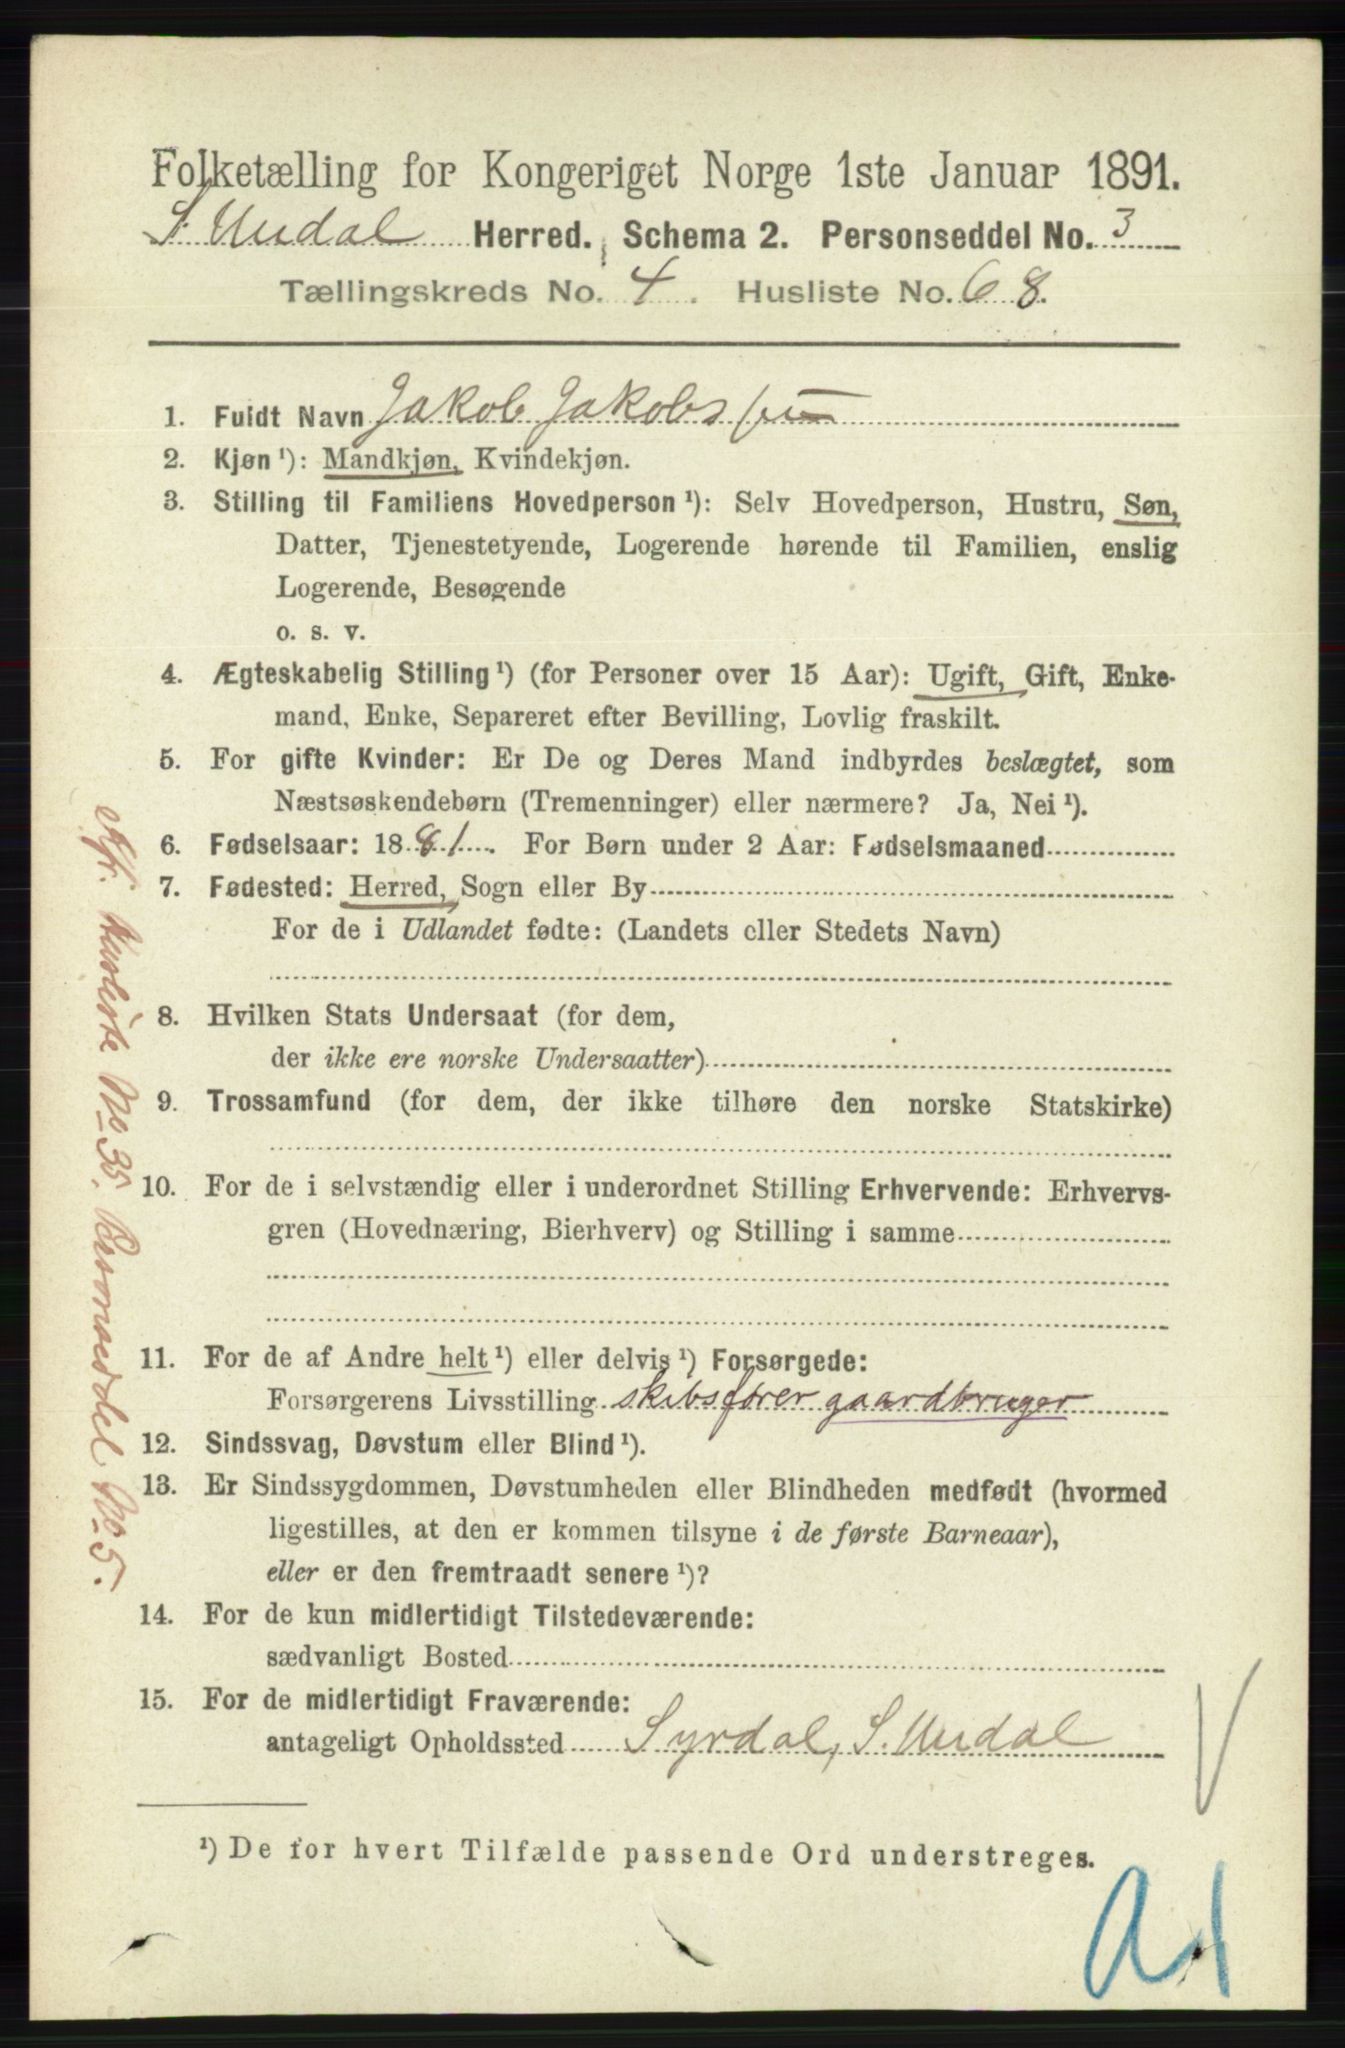 Folketælling for Kongeriget Norge 1ste Januar 1891.
S. Undal Herred. Schema 2. Personseddel No. 3
Tællingskreds No. 4. Husliste No. 68.
1. Fuldt Navn Jakob Jakobsen
2. Kjøn ¹): Mandkjøn, Kvindekjøn.
3. Stilling til Familiens Hovedperson ¹): Selv Hovedperson, Hustru, Søn,
Datter, Tjenestetyende, Logerende hørende til Familien, enslig
Logerende, Besøgende
o. s. v.
4. Ægteskabelig Stilling ¹) (for Personer over 15 Aar): Ugift, Gift, Enke-
mand, Enke, Separeret efter Bevilling, Lovlig fraskilt.
5. For gifte Kvinder: Er De og Deres Mand indbyrdes beslægtet, som
Næstsøskendebørn (Tremenninger) eller nærmere? Ja, Nei ¹).
6. Fødselsaar: 1881. For Børn under 2 Aar: Fødselsmaaned
7. Fødested: Herred, Sogn eller By
For de i Udlandet fødte: (Landets eller Stedets Navn)
8. Hvilken Stats Undersaat (for dem,
der ikke ere norske Undersaatter)
9. Trossamfund (for dem, der ikke tilhøre den norske Statskirke)
10. For de i selvstændig eller i underordnet Stilling Erhvervende: Erhvervs-
gren (Hovednæring, Bierhverv) og Stilling i samme
11. For de af Andre helt ¹) eller delvis ¹) Forsørgede:
Forsørgerens Livsstilling skibsfører gaardbruger
12. Sindssvag, Døvstum eller Blind ¹).
13. Er Sindssygdommen, Døvstumheden eller Blindheden medfødt (hvormed
ligestilles, at den er kommen tilsyne i de første Barneaar),
eller er den fremtraadt senere ¹)?
14. For de kun midlertidigt Tilstedeværende:
sædvanligt Bosted
15. For de midlertidigt Fraværende:
antageligt Opholdssted Syrdal, S. Undal
¹) De for hvert Tilfælde passende Ord understreges.
Husliste No 35. Personseddel No 5.